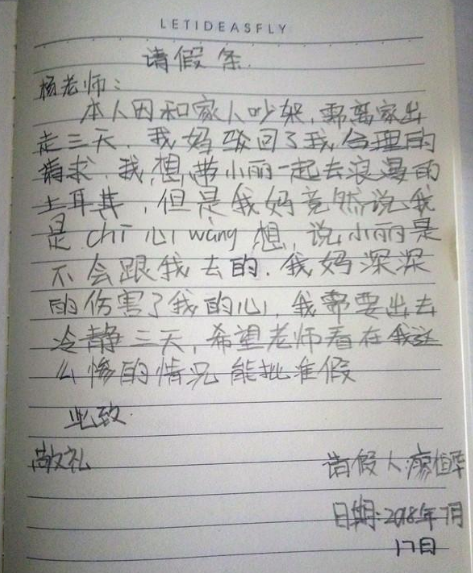 LETIDEASFLY
请假条
杨老师:
本人因和家人吵架,需离家出
走三天,我妈驳回了我合理的
请求,我想带小丽一起去浪漫的
土耳其,但是我妈竟然说我
是chi心wang想,说小丽是
不会跟我去的.我妈深深
的伤害了我的心,我需要出去
冷静三天,希望老师看在我这
么惨的情况能批准假
此致.
敬礼
请假人:廖
日期:2018年7月
17日